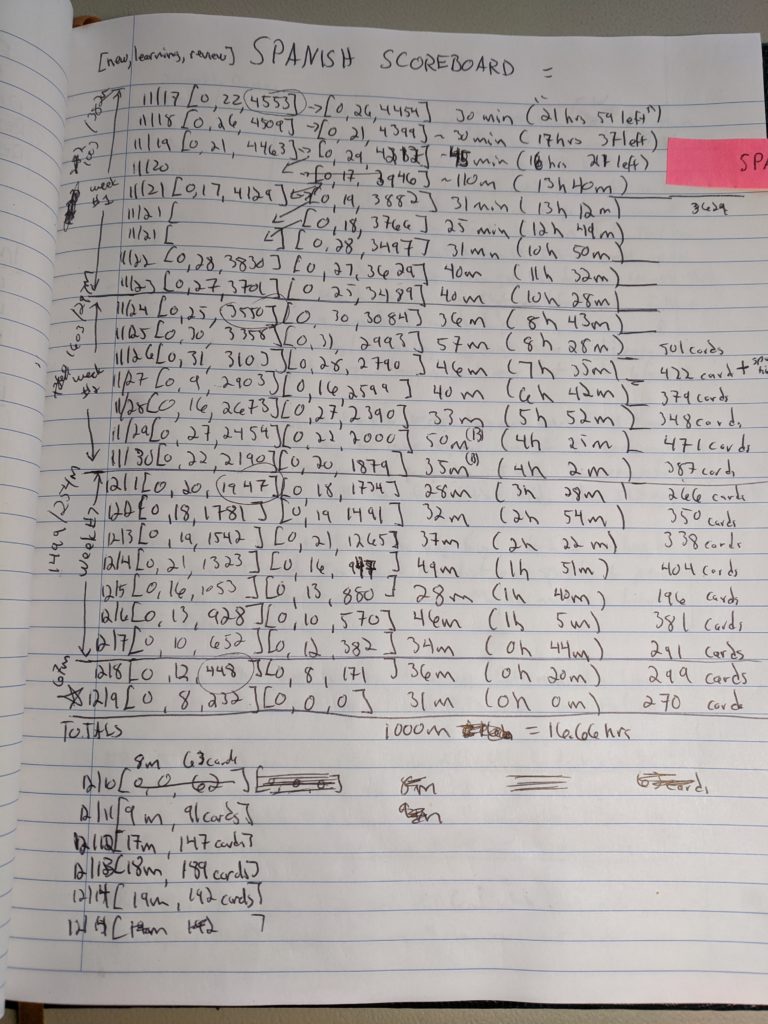 [new, learning, review] SPANISH SCOREBOARD =
11/17 [0, 22, 4553] → [0, 26, 4454] 30 min (21 hrs 59 left)
11/18 [0, 26, 4509] → [0, 21, 4399] ~30 min (17 hrs 37 left)
11/19 [0, 21, 4463] → [0, 29, ] ~45 min (16 hrs left)
11/20 → [0, 17, 3946] ~110m (13h 40m)
SPA
11/21 [0, 17, 4129] [0, 19, 3882] 31 min (13h 12m) 3629
11/21 [ [0, 18, 3766] 25 min (12h 49m)
11/21 [ ] [0, 28, 3497] 31 min (10h 50m)
11/22 [0, 28, 3830] [0, 27, 3629] 40m (11h 32m)
11/23 [0, 27, 3701] [0, 25, 3489] 40m (10h 28m)
week #1
11/24 [0, 25, 3550] [0, 30, 3084] 36m (8h 43m)
11/25 [0, 30, 3358] [0, 31, 2993] 57m (8h 28m) 501 cards
11/26 [0, 31, 3103] [0, 28, 2790] 46m (7h 35m) 422 card +
11/27 [0, 9, 2903] [0, 16, 2599] 40m (6h 42m) 379 cards
11/28 [0, 16, 2673] [0, 27, 2390] 33m (5h 52m) 348 cards
11/29 [0, 27, 2454] [0, 22, 2000] 50m (4h 21m) 471 cards
11/30 [0, 22, 2190] [0, 20, 1879] 35m (4h 2m) 387 cards
week #2
12/1 [0, 20, 1947] [0, 18, 1734] 28m (3h 28m) 266 cards
12/2 [0, 18, 1781] [0, 19 1491] 32m (2h 54m) 350 cards
12/3 [0, 19, 1542] [0, 21, 1265] 37m (2h 22m) 338 cards
12/4 [0, 21, 1323] [0, 16, ] 49m (1h 51m) 404 cards
12/5 [0, 16, 1053] [0, 13, 880] 28m (1h 40m) 196 cards
12/6 [0, 13, 928] [0, 10, 570] 46m (1h 5m) 381 cards
12/7 [0, 10, 652] [0, 12, 382] 34m (0h 44m) 291 cards
1499/254m
week #3
12/8 [0, 12, 448] [0, 8, 171] 36m (0h 20m) 299 cards
12/9 [0, 8, 232] [0, 0, 0] 31m (0h 0m) 270 cards
67m
TOTALS 1000m = 16.66 hrs
8m 63 cards
12/10 [0, 0, 62] [0, 0, 0] 8m 63 cards
12/11 [9m, 91 cards]
12/12 [17m, 147 cards]
12/13 [18m, 189 cards]
12/14 [19m, 142 cards]
12/14 [19m 142 ]